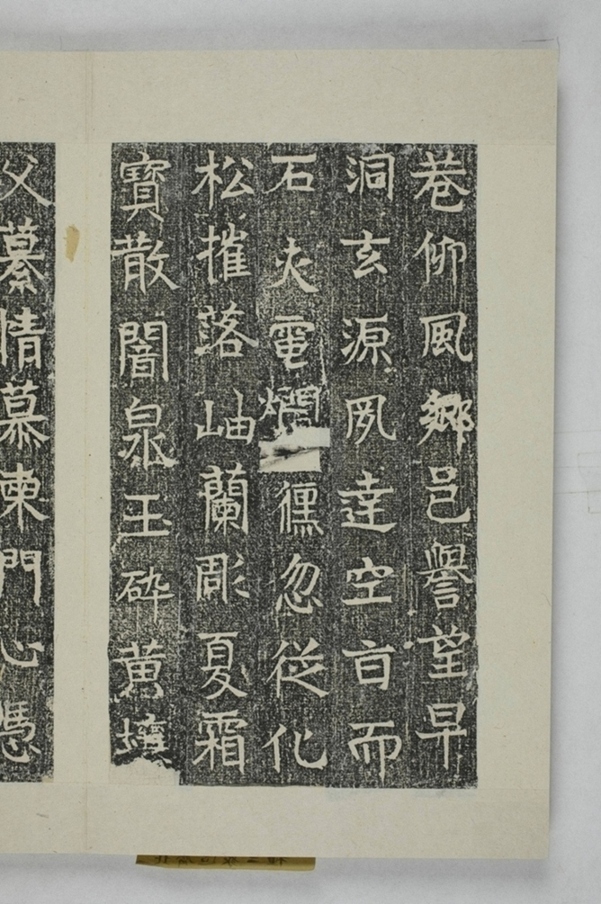 巷仰風鄉邑譽望早
洞玄源夙達空旨而
石火電儵忽從化
松摧落岫蘭彫夏霜
寶散闇泉玉碎黃
父情慕東門心憑